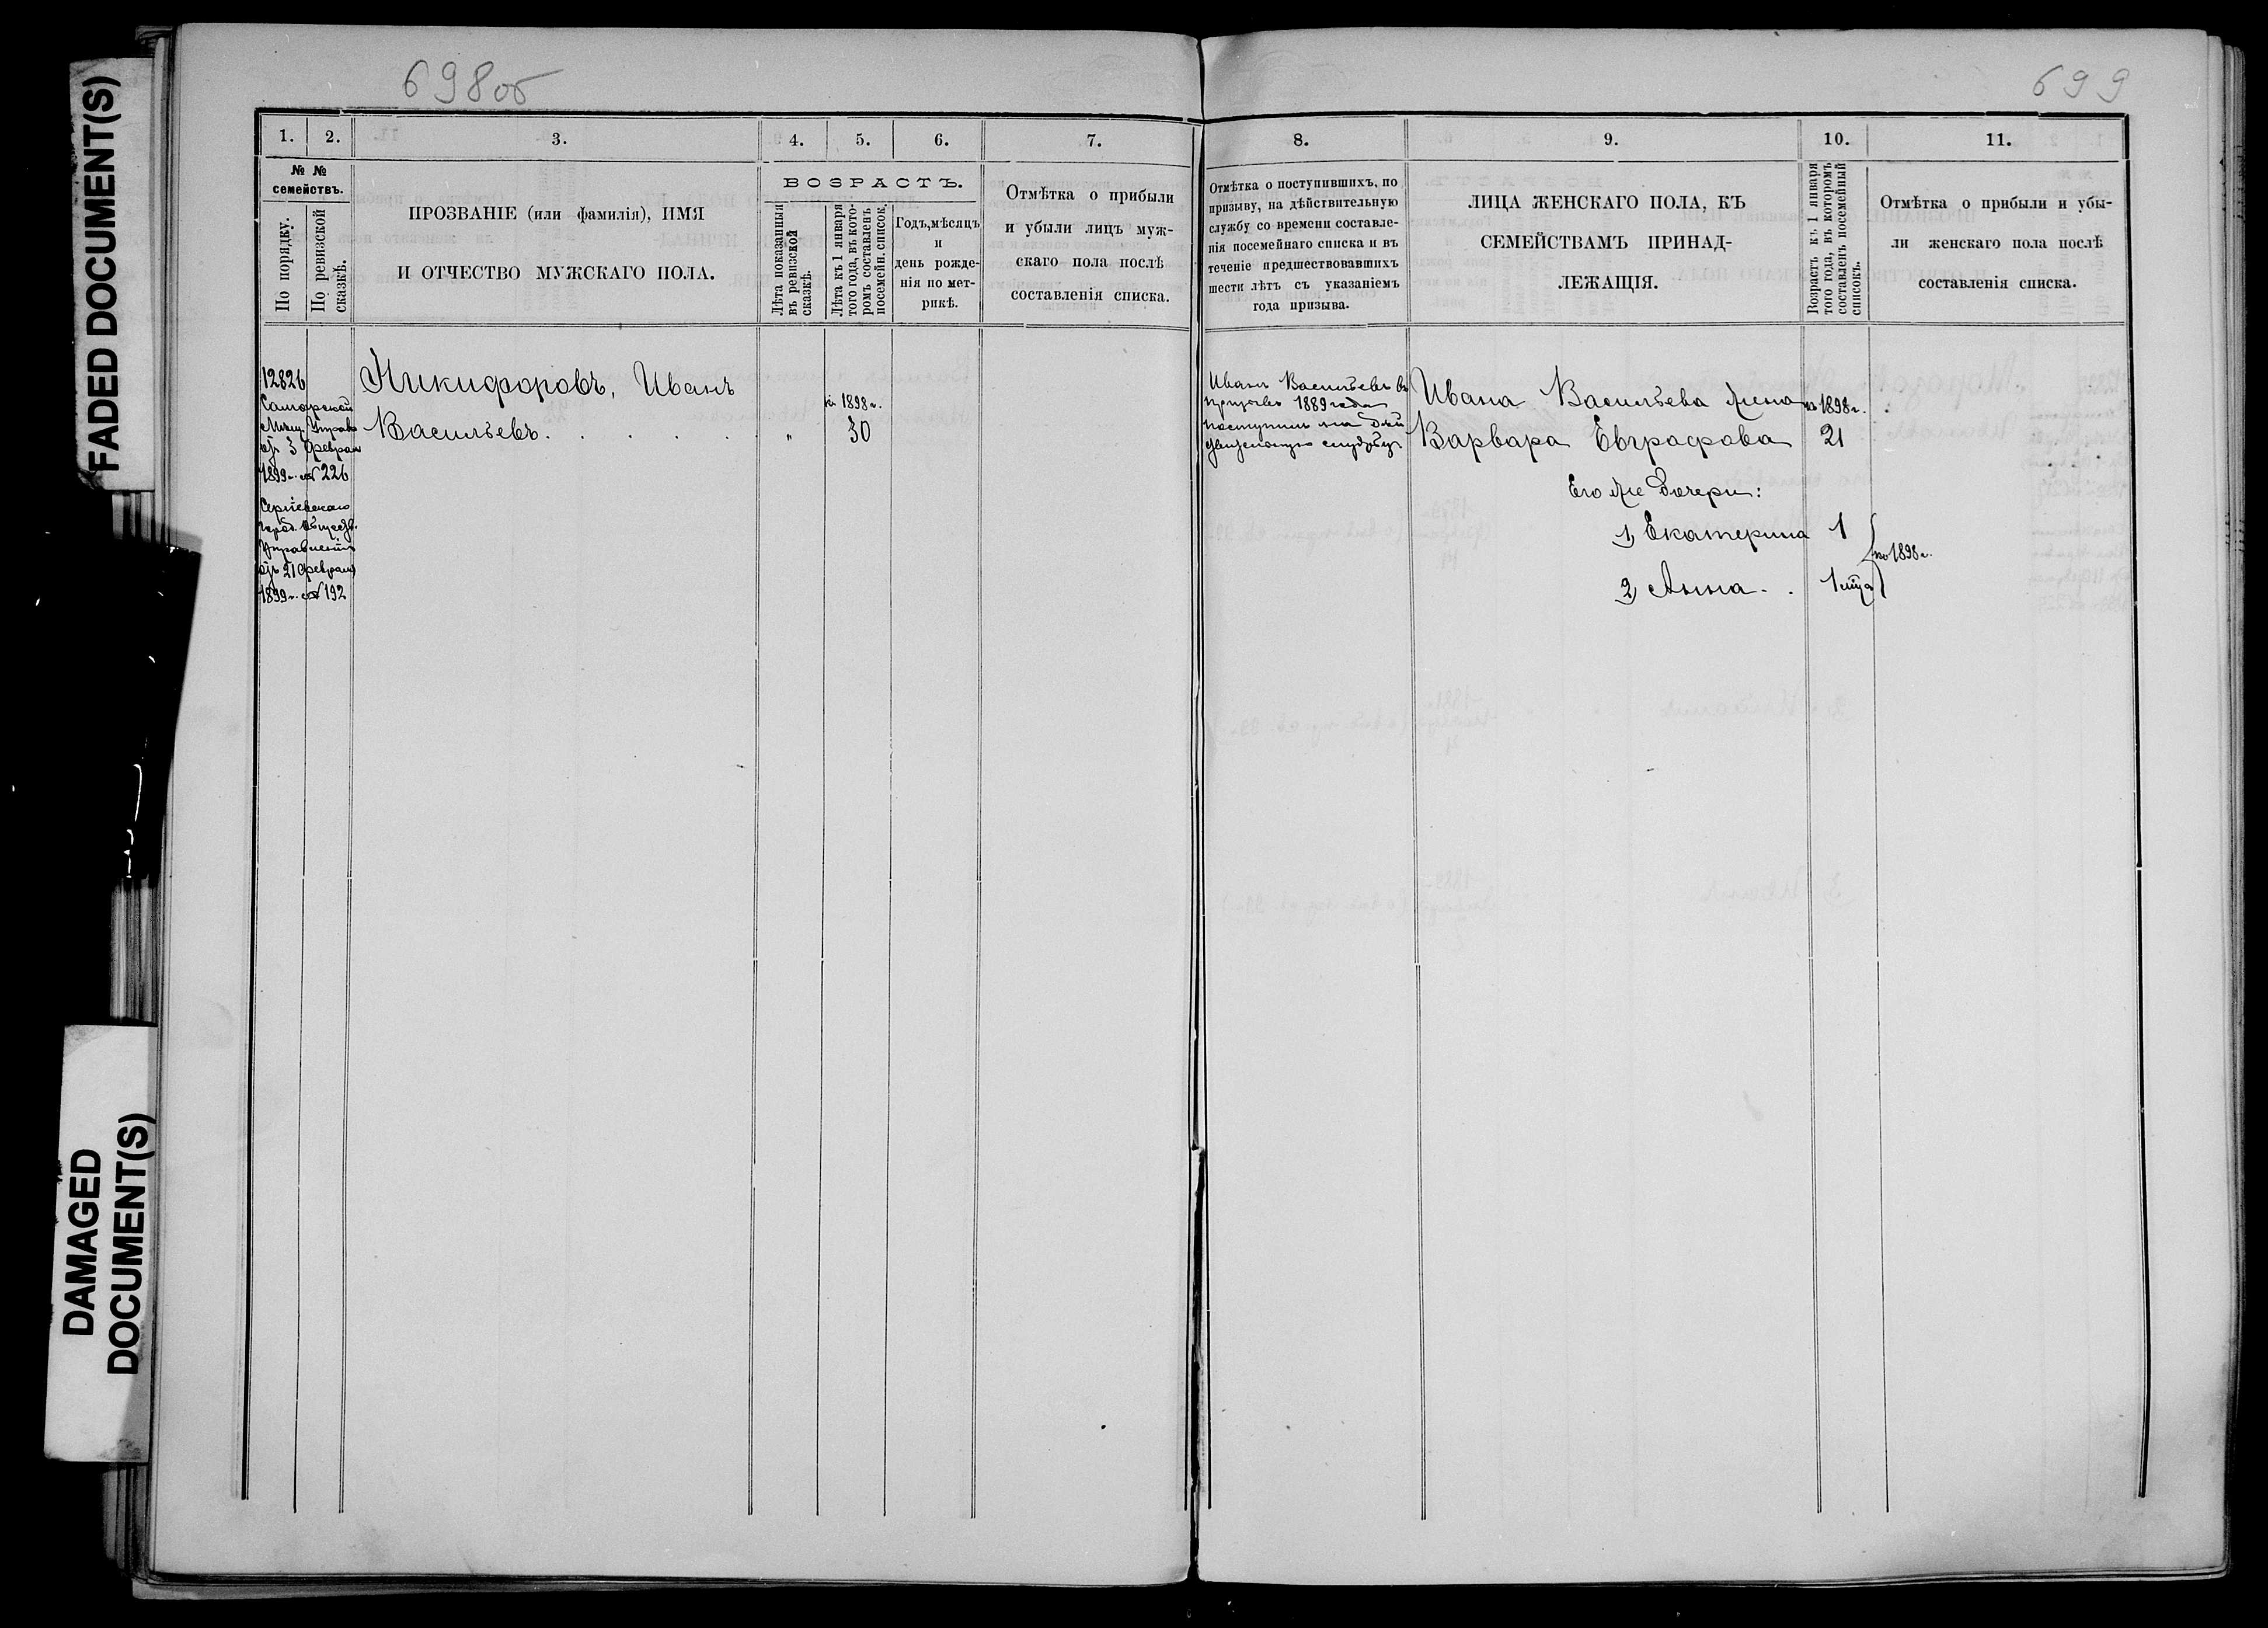 FADED DOCUMENT(S)
DAMAGED
DOCUMENT(S)
698об
1. 2. 3. 4. 5. 6. 7.
№ №
семействъ.
По порядку.
По ревизской
сказкѣ.
ПРОЗВАНІЕ (или фамилія), ИМЯ
И ОТЧЕСТВО МУЖСКАГО ПОЛА.
ВОЗРАСТЪ.
Лѣта показанныя
въ ревизской
сказкѣ.
Лѣта къ 1 января
того года, въ кото-
ромъ составленъ
посемейн. список.
Годъ, мѣсяцъ
и
день рожде-
нія по мет-
рикѣ.
Отмѣтка о прибыли
и убыли лицъ муж-
скаго пола послѣ
составленія списка.
12826
Самарской
Мѣщ. Управы
отъ 3 февраля
1899 г. № 226
Сергіевскаго
город. общества.
Управленія
отъ 21 февраля
1899 г. № 192
Никифоровъ, Иванъ
Васильевъ. . . . . .
„
къ 1898 г.
30
699
8. 9. 10. 11.
Отмѣтка о поступившихъ, по
призыву, на дѣйствительную
службу со времени составле-
нія посемейнаго списка и въ
теченіе предшествовавшихъ
шести лѣтъ съ указаніемъ
года призыва.
ЛИЦА ЖЕНСКАГО ПОЛА, КЪ
СЕМЕЙСТВАМЪ ПРИНАД-
ЛЕЖАЩІЯ.
Возрастъ къ 1 января
того года, въ которомъ
составленъ посемейный
списокъ.
Отмѣтка о прибыли и убы-
ли женскаго пола послѣ
составленія списка.
Иванъ Васильевъ въ
призывъ 1889 года
поступилъ на дѣй
ствительную службу.
Ивана Васильева жена
Варвара Евграфова
къ 1898 г.
21
Его же дочери:
1) Екатерина 1
2) Анна. . 1
по 1898 г.